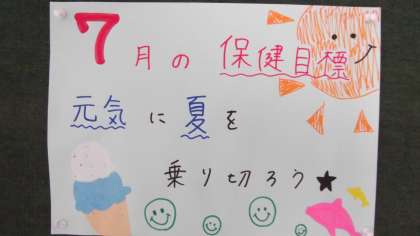 7月の保健目標
元気に夏を
乗り切ろう★